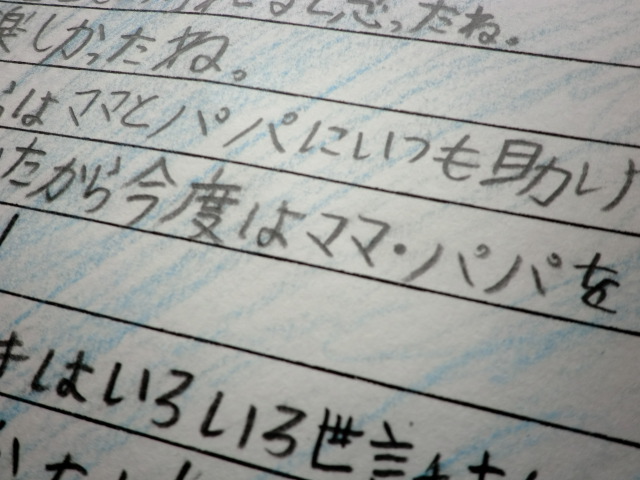 になると思ったね。
楽しかったね。
はママとパパにいつも助け
たから今度はママ・パパを
はいろいろ世話